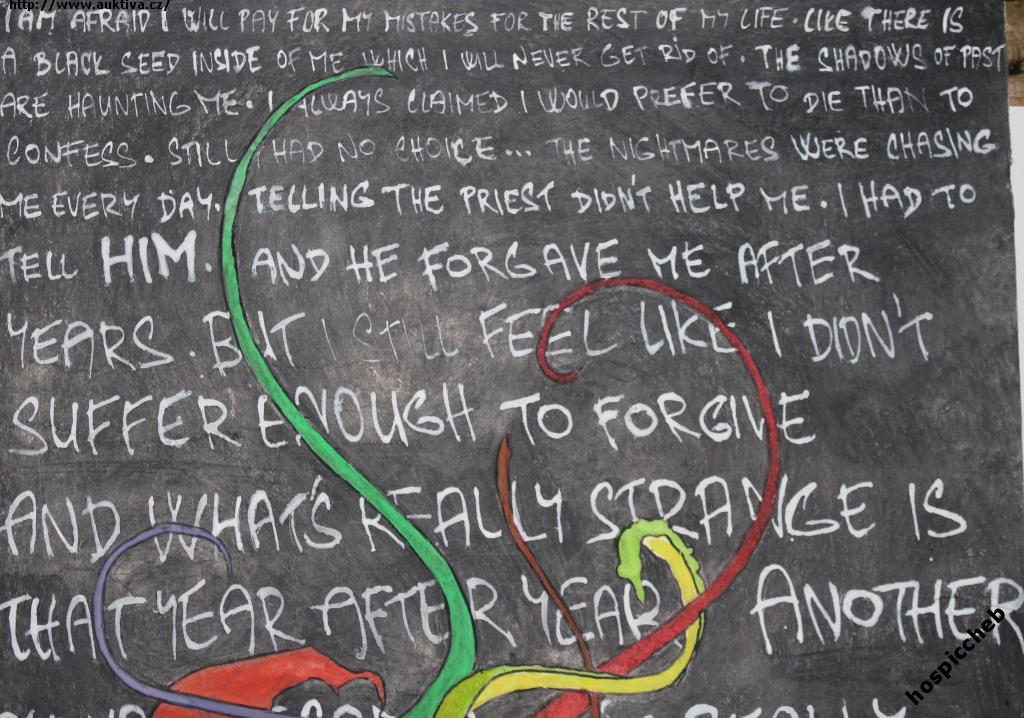 http://www.auktiva.cz/
I AM AFRAID I WILL PAY FOR MY MISTAKES FOR THE REST OF MY LIFE. LIKE THERE IS
A BLACK SEED INSIDE OF ME WHICH I WILL NEVER GET RID OF. THE SHADOWS OF PAST
ARE HAUNTING ME. I ALWAYS CLAIMED I WOULD PREFER TO DIE THAN TO
CONFESS. STILL I HAD NO CHOICE... THE NIGHTMARES WERE CHASING
ME EVERY DAY. TELLING THE PRIEST DIDN'T HELP ME. I HAD TO
TELL HIM. AND HE FORGAVE ME AFTER
YEARS. BUT I STILL FEEL LIKE I DIDN'T
SUFFER ENOUGH TO FORGIVE
AND WHAT'S REALLY STRANGE IS
THAT YEAR AFTER YEAR ANOTHER
hospiccheb